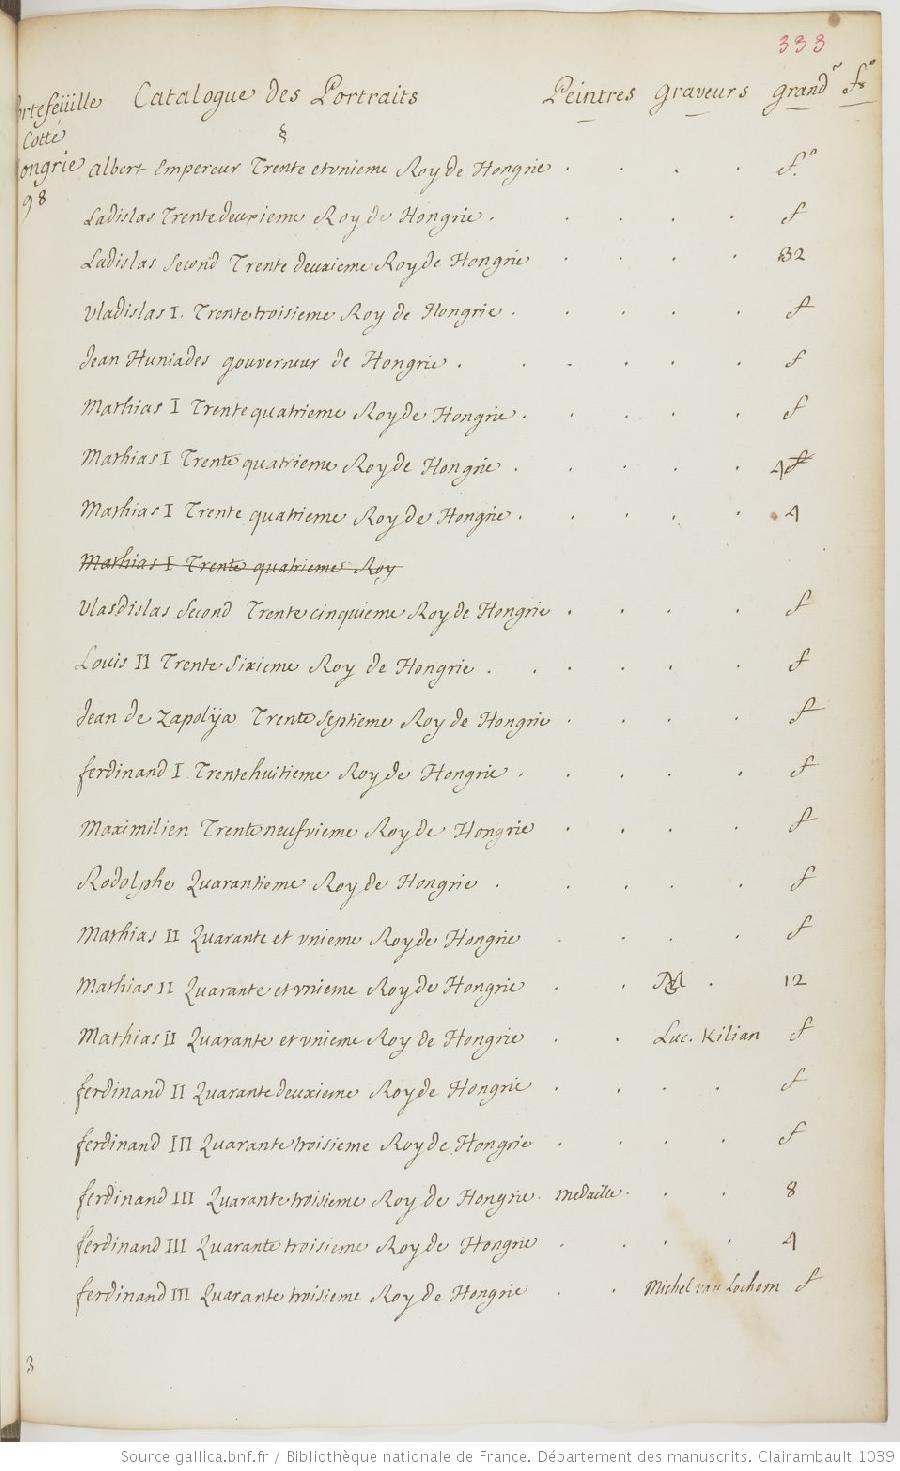 333
Portefeüille Catalogue des Portraits Peintres graveurs grandr fo
Cotté §
hongrie albert Empereur Trente et vnieme Roy de Hongrie . . . . f.o
98
Ladislas Trente deuxieme Roy de Hongrie . . . . . f
Ladislas Second Trente deuxieme Roy de Hongrie . . . . 32
Vladislas I. Trente troisieme Roy de Hongrie . . . . . f
Jean Huniades gouverneur de Hongrie . . . . . . f
Mathias I Trente quatrieme Roy de Hongrie . . . . . f
Mathias I Trente quatrieme Roy de Hongrie . . . . . 4
Mathias I Trente quatrieme Roy de Hongrie . . . . . 4
Mathias I Trente quatrieme Roy
Vlasdislas Second Trente cinquieme Roy de Hongrie . . . . f
Louis II Trente Sixieme Roy de Hongrie . . . . . . f
Jean de Zapolÿa Trente Septieme Roy de Hongrie . . . . f
ferdinand I Trente huitieme Roy de Hongrie . . . . . f
Maximilien Trente neufvieme Roy de Hongrie . . . . f
Rodolphe Quarantieme Roy de Hongrie . . . . . f
Mathias II Quarante et vnieme Roy de Hongrie . . . . f
Mathias II Quarante et vnieme Roy de Hongrie . . . 12
Mathias II Quarante et vnieme Roy de Hongrie . . Luc. Kilian f
ferdinand II Quarante deuxieme Roy de Hongrie . . . . f
ferdinand III Quarante troisieme Roy de Hongrie . . . . f
ferdinand III Quarante troisieme Roy de Hongrie . medaille . . . 8
ferdinand III Quarante troisieme Roy de Hongrie . . . . 4
ferdinand III Quarante troisieme Roy de Hongrie . . Michel van Lochom f
3
Source gallica.bnf.fr / Bibliothèque nationale de France. Département des manuscrits. Clairambault 1039